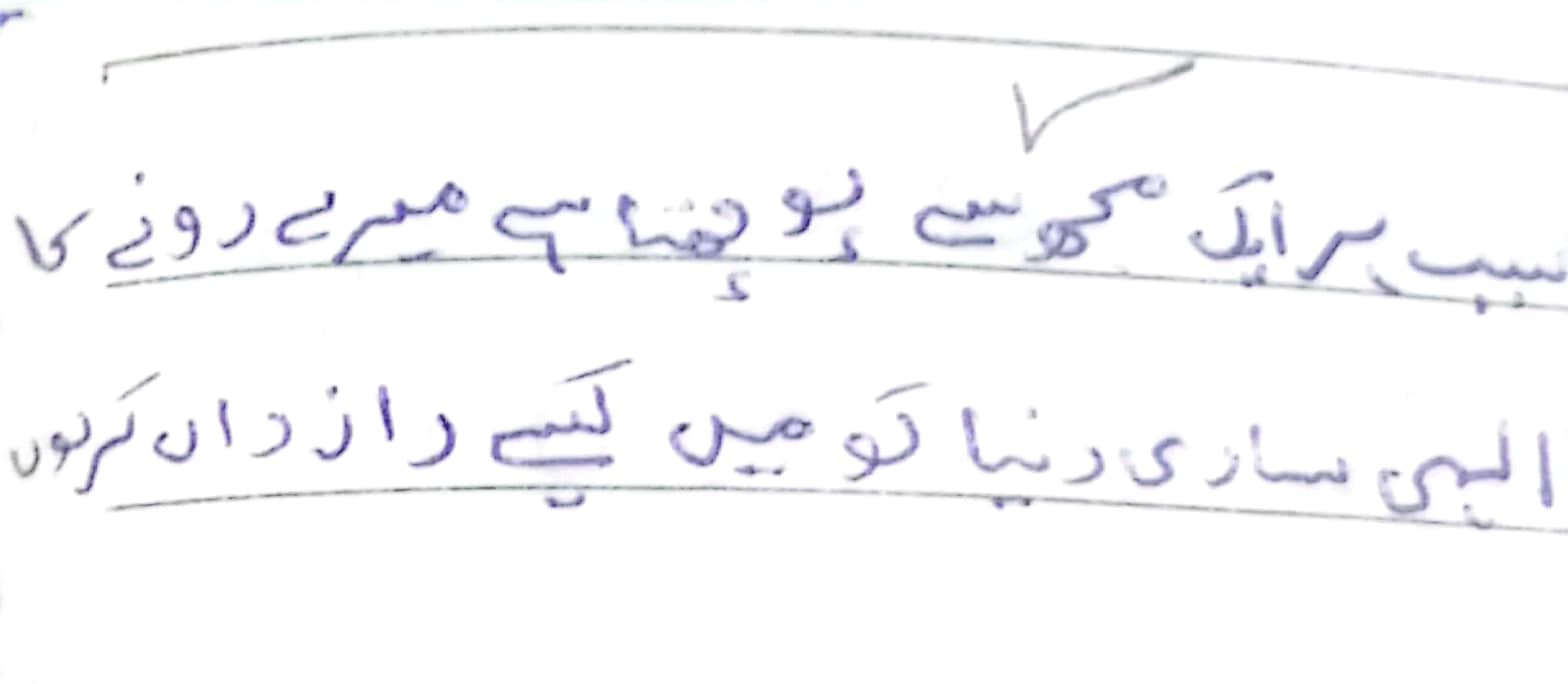 سبب ہر ایک مجھ سے پوچھتا ہے میرے رونے کا
الہی ساری دنیا کو میں کیسے راز داں کرلوں